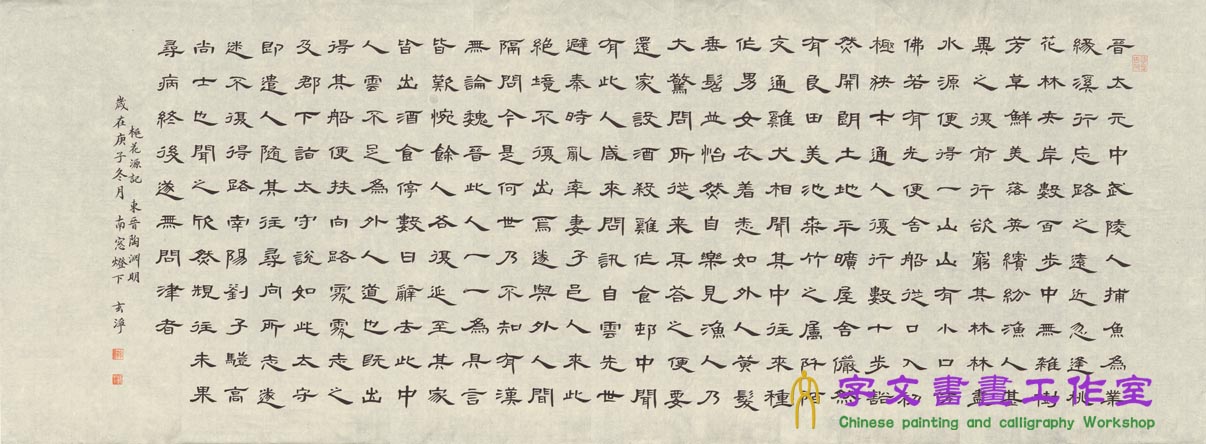 晉太元中武陵人捕魚為業
緣溪行忘路之遠近忽逢桃
花林夾岸數百步中無雜樹
芳草鮮美落英繽紛漁人甚
異之復前行欲窮其林林盡
水源便得一山山有小口
佛若有光便舍船從口入初
極狹才通人復行數十步豁
然開朗土地平曠屋舍儼然
有良田美池桑竹之屬阡陌
交通雞犬相聞其中往來種
作男女衣着悉如外人黃髮
垂髫並怡然自樂見漁人乃
大驚問所從來具答之便要
還家設酒殺雞作食邨中聞
有此人咸來問訊自雲先世
避秦時亂率妻子邑人來此
絕境不復出焉遂與外人間
隔問今是何世乃不知有漢
無論魏晉此人一一為具言
皆歎惋餘人各復延至其家
皆出酒食停數日辭去此中
人雲不足為外人道也既出
得其船便扶向路處處志之
及郡下詣太守說如此太守
即遣人隨其往尋向所志遂
迷不復得路南陽劉子驥高
尚士也聞之欣然規往未果
尋病終後遂無問津者
桃花源記 東晉陶淵明
歲在庚子冬月 南窗燈下 玄淨
字文書畫工作室
Chinese painting and calligraphy Workshop